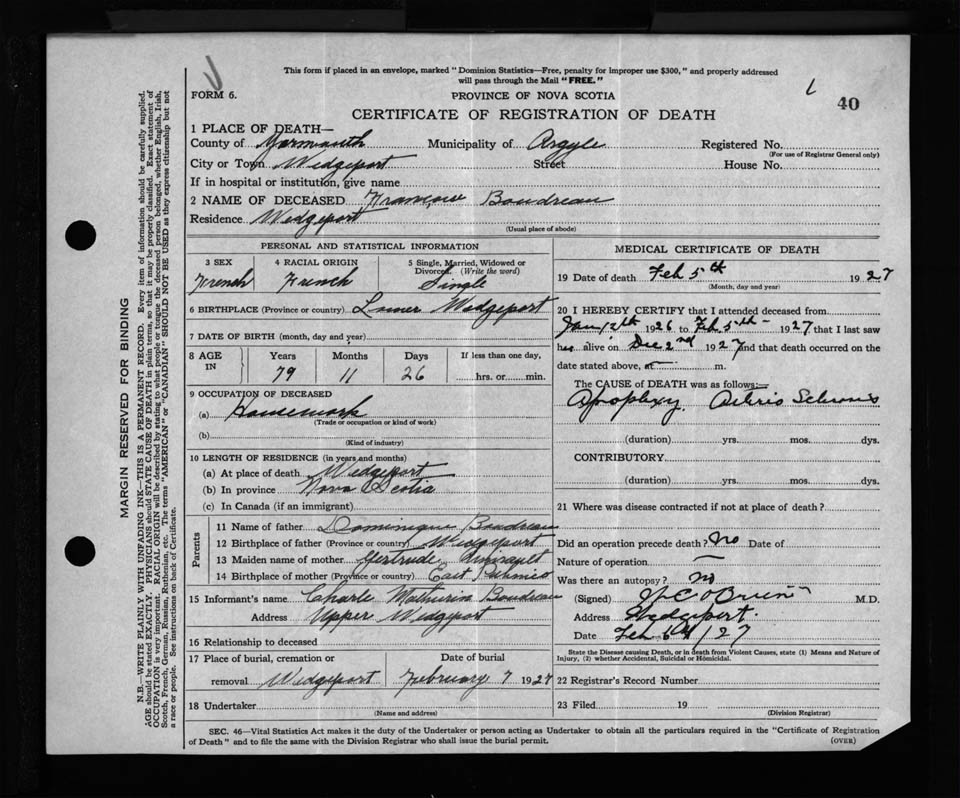 This form if placed in an envelope, marked "Dominion Statistics—Free, penalty for improper use $300," and properly addressed
will pass through the Mail "FREE."
FORM 6.
PROVINCE OF NOVA SCOTIA
L 40
CERTIFICATE OF REGISTRATION OF DEATH
1 PLACE OF DEATH—
County of Yarmouth Municipality of Argyle Registered No.
(For use of Registrar General only)
City or Town Wedgeport Street House No.
If in hospital or institution, give name
2 NAME OF DECEASED Boudreau
Residence Wedgeport
(Usual place of abode)
PERSONAL AND STATISTICAL INFORMATION
3 SEX
4 RACIAL ORIGIN
5 Single, Married, Widowed or
Divorced. (Write the word)
French French Single
6 BIRTHPLACE (Province or country) Lower Wedgeport
7 DATE OF BIRTH (month, day and year)
8 AGE IN
Years Months Days If less than one day,
79 11 26 hrs. or min.
9 OCCUPATION OF DECEASED
(a) Housework
(Trade or occupation or kind of work)
(b)
(Kind of industry)
10 LENGTH OF RESIDENCE (in years and months)
(a) At place of death Wedgeport
(b) In province Nova Scotia
(c) In Canada (if an immigrant)
Parents
11 Name of father Dominique Boudreau
12 Birthplace of father (Province or country) Wedgeport
13 Maiden name of mother Gertrude
14 Birthplace of mother (Province or country) East Pubnico
15 Informant's name Charle Mathurin Boudreau
Address Upper Wedgeport
16 Relationship to deceased
17 Place of burial, cremation or
removal Wedgeport
Date of burial
February 7 1927
18 Undertaker
(Name and address)
MEDICAL CERTIFICATE OF DEATH
19 Date of death Feb 5th 1927
(Month, day and year)
20 I HEREBY CERTIFY that I attended deceased from
Jan 12th 1926 to Feb 5th 1927 that I last saw
her alive on Dec 2nd 1927 and that death occurred on the
date stated above, at m.
The CAUSE of DEATH was as follows:—
Apoplexy.
(duration) yrs. mos. dys.
CONTRIBUTORY
(duration) yrs. mos. dys.
21 Where was disease contracted if not at place of death?
Did an operation precede death? No Date of
Nature of operation —
Was there an autopsy? no
(Signed) O'Brien M.D.
Address Wedgeport.
Date Feb 6th/27
State the Disease causing Death, or in death from Violent Causes, state (1) Means and Nature of
Injury, (2) whether Accidental, Suicidal or Homicidal.
22 Registrar's Record Number
23 Filed 19
(Division Registrar)
SEC. 46—Vital Statistics Act makes it the duty of the Undertaker or person acting as Undertaker to obtain all the particulars required in the "Certificate of Registration
of Death" and to file the same with the Division Registrar who shall issue the burial permit.
(OVER)
MARGIN RESERVED FOR BINDING
N.B.—WRITE PLAINLY WITH UNFADING INK—THIS IS A PERMANENT RECORD. Every item of information should be carefully supplied.
AGE should be stated EXACTLY. PHYSICIANS should STATE CAUSE OF DEATH in plain terms, so that it may be properly classified. Exact statement of
OCCUPATION is very important. RACIAL ORIGIN will be described by stating to what people or tongue the deceased person belonged, whether English, Irish,
Scotch, French, German, Russian, Ruthenian, etc. The terms "AMERICAN" or "CANADIAN" SHOULD NOT BE USED as they express citizenship but not
a race or people. See instructions on back of Certificate.